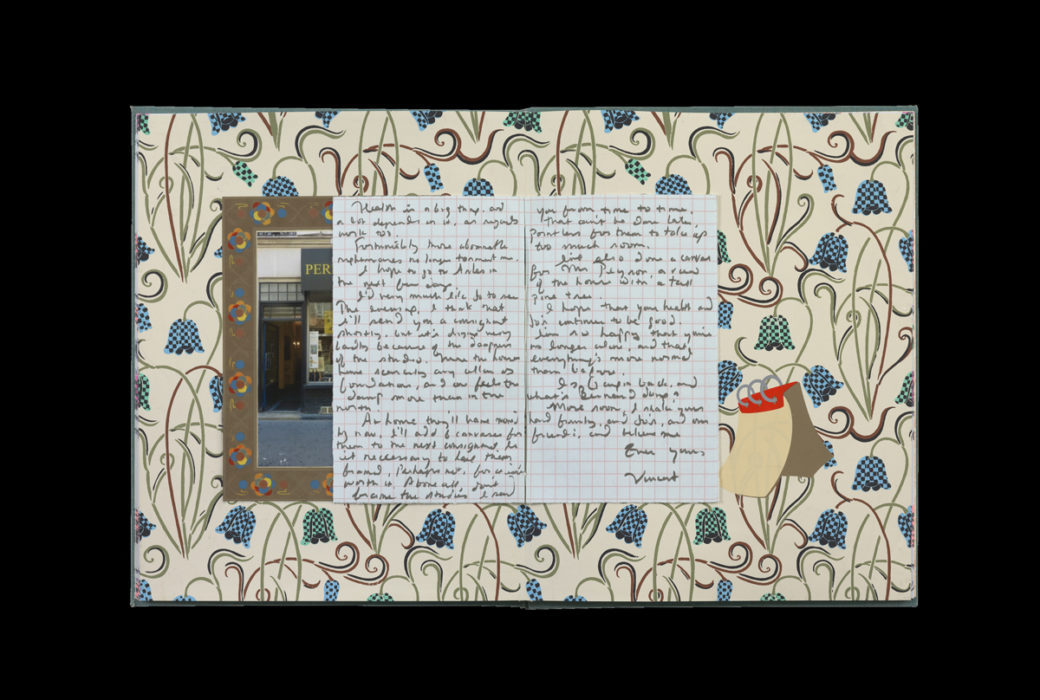 PER
Health is a big thing, and
a lot depends on it, as regards
work too.
Fortunately those abominable
nightmares no longer torment me.
I hope to go to Arles in
the next few days.
I'd very much like Jo to see
The evening, I think that
I'll send you a consignment
shortly, but it's drying very
badly because of the dampness
of the studio. Here the houses
have scarcely any cellars or
foundations, and one feels the
damp more than in the
north.
At home they'll have moved
by now, I'll add 6 canvases for
them to the next consignment. Is
it necessary to have them
framed, Perhaps not, for
worth it. Above all, don't
frame the studies I send
you from time to time.
That can be done later,
Pointless for them to take up
too much room.
I've also done a canvas
for Mr Peyron, a view
of the house with a tall
pine tree.
I hope that your health and
Jo's continue to be good.
I am so happy that you're
no longer alone, and that
everything's more normal
than before.
Is Gauguin back, and
what's Bernard doing?
More soon, I shake your
hand firmly, and Jo's, and our
friends, and believe me
Ever yours
Vincent